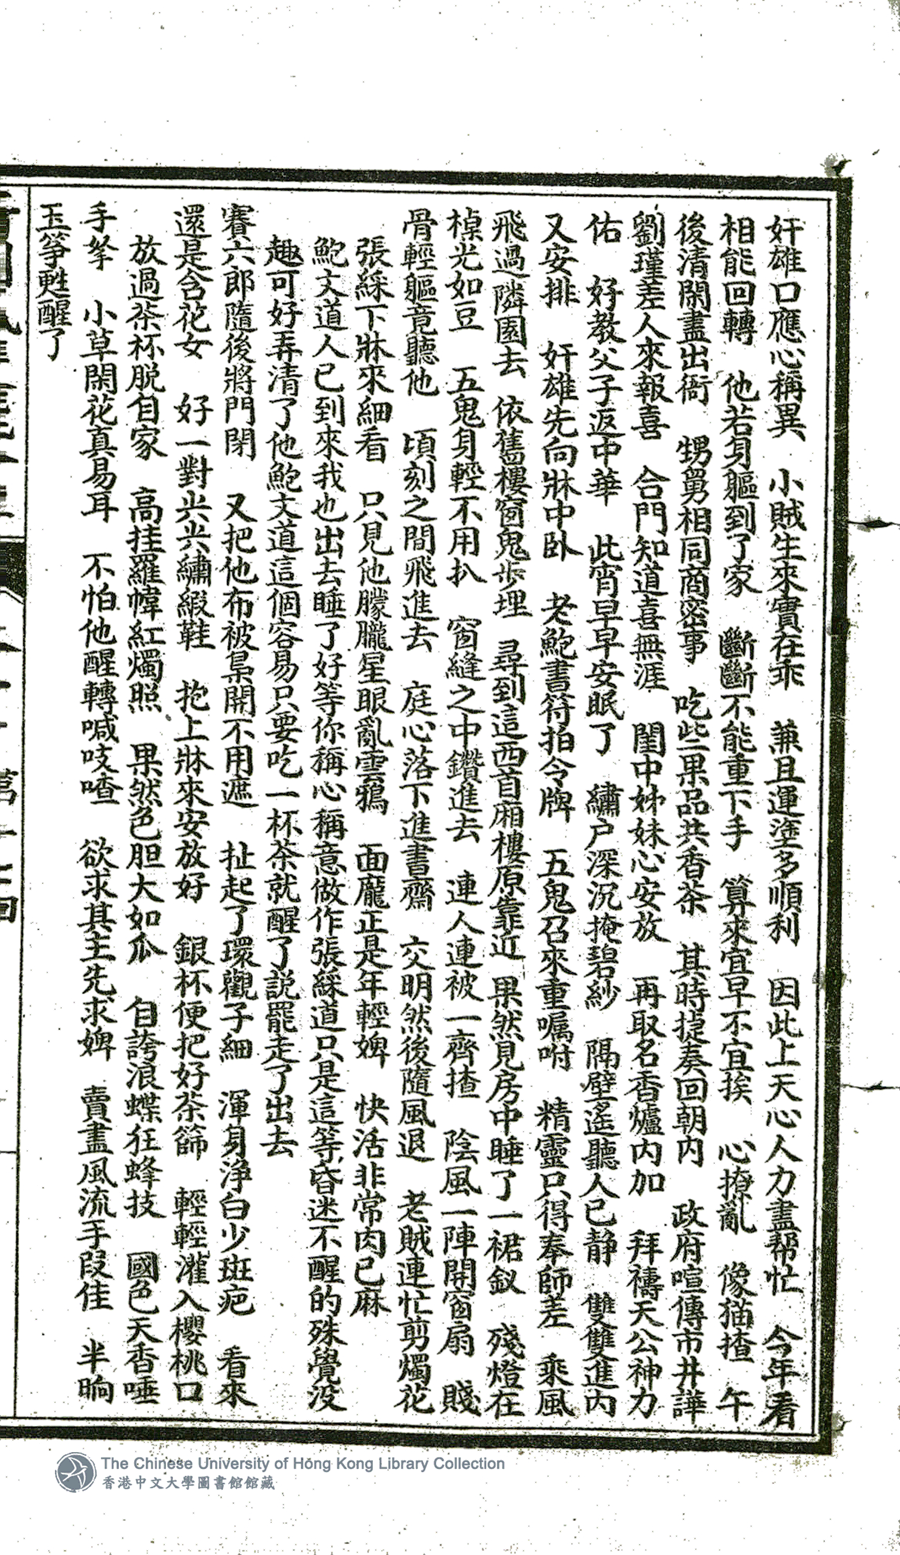 奸雄口應心稱異　小賊生來實在乖　兼且運塗多順利　因此上天心人力盡帮忙　今年看
相能回轉　他若身軀到了家　斷斷不能重下手　算來宜早不宜挨　心撩亂　像猫揸　午
後清閑盡出衙　甥舅相同商密事　吃些果品共香茶　其時捷奏回朝内　政府喧傳市井譁
劉瑾差人來報喜　合門知道喜無涯　閨中姊妹心安放　再取名香爐内加　拜禱天公神力
佑　好教父子返中華　此宵早早安眠了　繡户深沉掩碧紗　隔壁遙聽人已静　雙雙進内
又安排　奸雄先向牀中卧　老鮑書符拍令牌　五鬼召來重囑咐　精靈只得奉師差　乘風
飛過隣園去　依舊樓窗鬼步埋　尋到這西首廂樓原靠近　果然見房中睡了一裙釵　殘燈在
棹光如豆　五鬼身輕不用扒　窗縫之中鑽進去　連人連被一齊揸　陰風一陣開窗扇　賤
骨輕軀竟聽他　頃刻之間飛進去　庭心落下進書齋　交明然後隨風退　老賊連忙剪燭花
張綵下牀來細看　只見他朦朧星眼亂雲鴉　面龐正是年輕婢　快活非常肉已麻
鮑文道人已到來我也出去睡了好等你稱心稱意做作張綵道只是這等昏迷不醒的殊覺没
趣可好弄清了他鮑文道這個容易只要吃一杯茶就醒了説罷走了出去
賽六郎隨後將門閉　又把他布被梟開不用遮　扯起了環觀子細　渾身浄白少斑疤　看來
還是含花女　好一對尖尖繡緞鞋　抱上牀來安放好　銀杯便把好茶篩　輕輕灌入櫻桃口
放過茶杯脱自家　高挂羅幃紅燭照　果然色胆大如瓜　自誇浪蝶狂蜂技　國色天香唾
手拏　小草閑花真易耳　不怕他醒轉喊吱喳　欲求其主先求婢　賣盡風流手段佳　半晌
玉箏甦醒了
The Chinese University of Hong Kong Library Collection
香港中文大學圖書館館藏